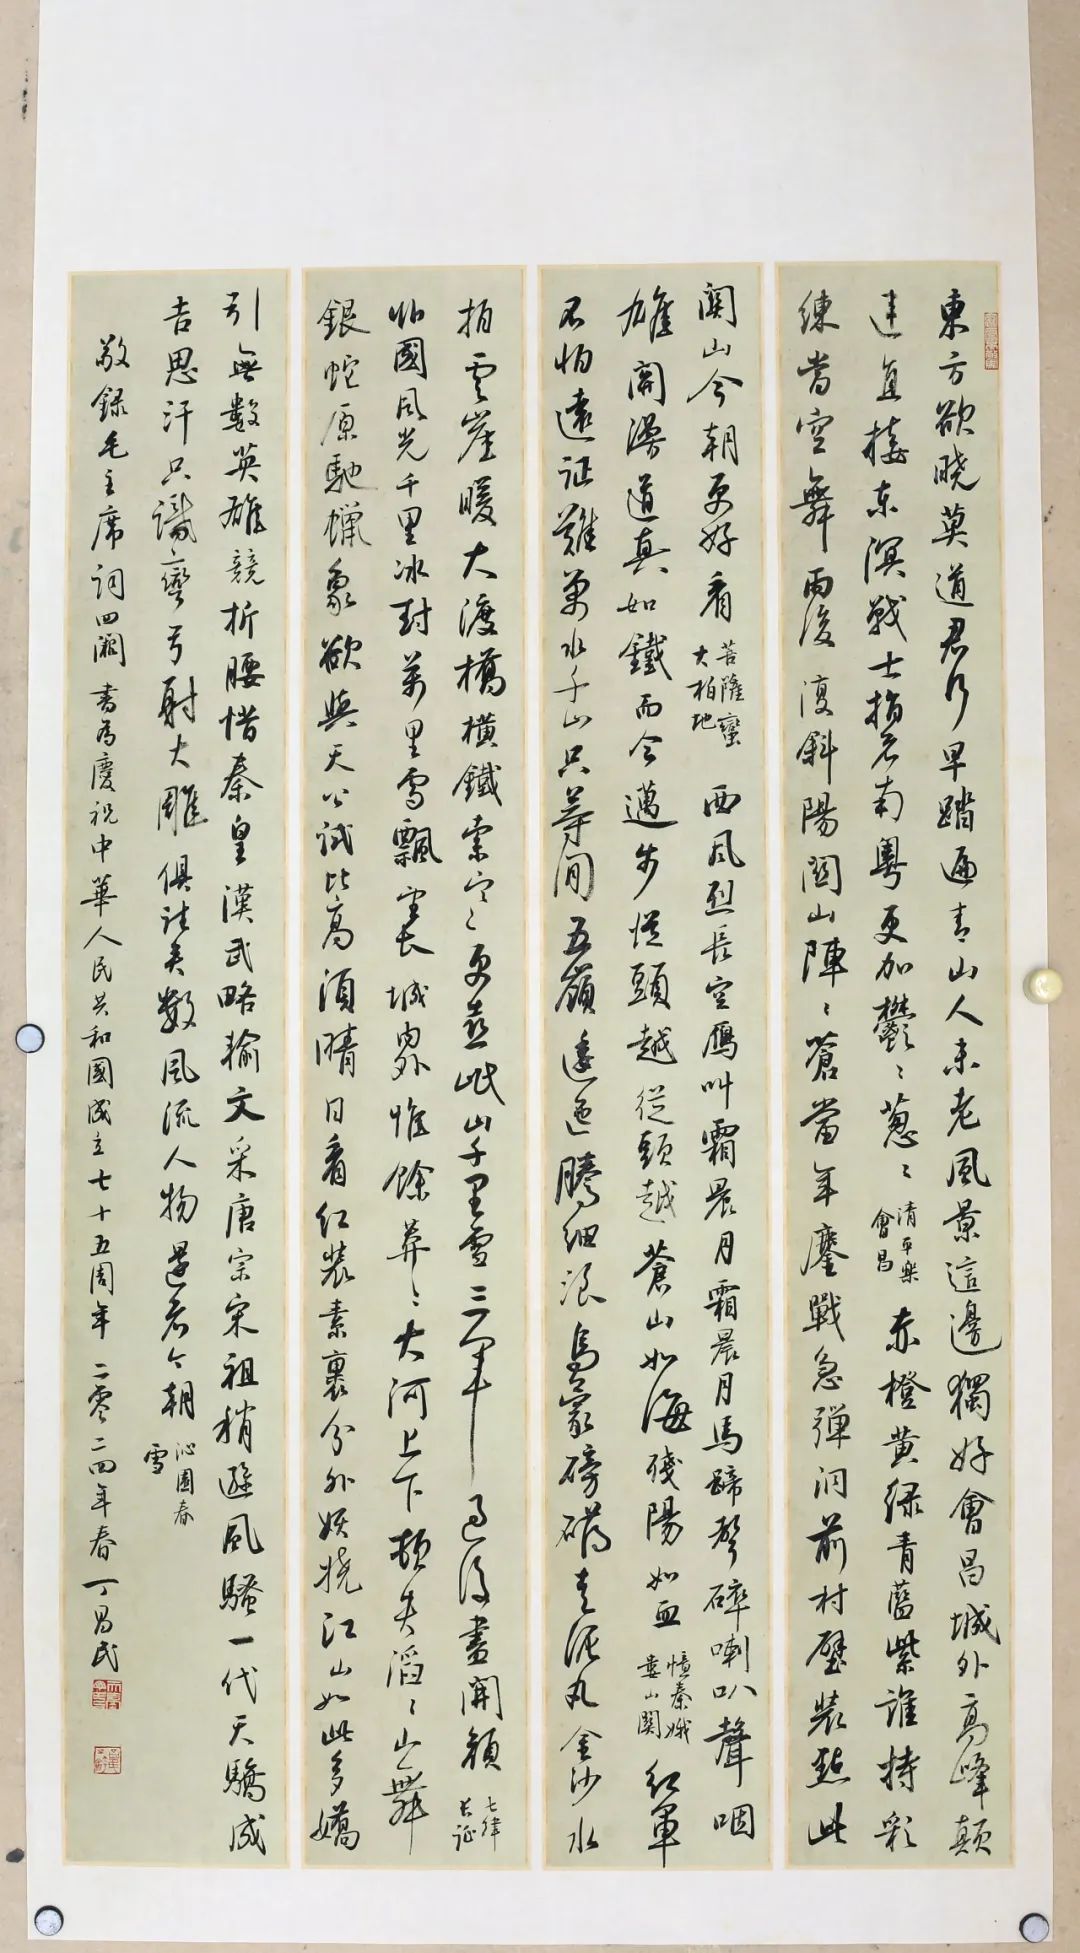 東方欲曉莫道君行早踏遍青山人未老風景這邊獨好會昌城外高峰顛
連直接東溟戰士指看南粵更加鬱〻蔥〻
清平樂
會昌
赤橙黄绿青藍紫誰持彩
練當空舞雨後復斜陽關山陣〻蒼當年鏖戰急彈洞前村壁裝點此
關山今朝更好看
菩薩蠻
大柏地
西風烈長空鴈叫霜晨月霜晨月馬蹄聲碎喇叭聲咽
雄關漫道真如鐵而今邁步從頭越從頭越蒼山如海殘陽如血
憶秦娥
婁山關
红軍
不怕遠征難萬水千山只等閒五嶺逶迤騰細浪烏蒙磅礴走泥丸金沙水
拍雲崖暖大渡橋横鐵索寒更喜岷山千里雪三軍過後盡開顔
七律
长证
北國風光千里冰封萬里雪飄望长城内外惟餘莽〻大河上下頓失滔〻山舞
銀蛇原馳蠟象欲與天公試比高須晴日看红裝素裹分外妖嬈江山如此多嬌
引無數英雄競折腰惜秦皇漢武略輸文采唐宗宋祖稍遜風騷一代天驕成
吉思汗只識彎弓射大雕俱往矣數風流人物還看今朝
沁園春
雪
敬録毛主席詞四闋書為慶祝中華人民共和國成立七十五周年二零二四年春丁昌民